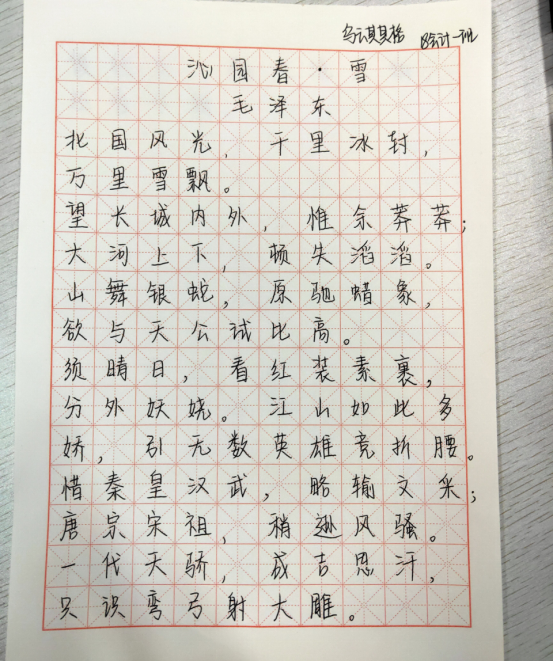 乌云其其格 18会计一班
沁园春·雪
毛泽东
北国风光，千里冰封，
万里雪飘。
望长城内外，惟余莽莽；
大河上下，顿失滔滔。
山舞银蛇，原驰蜡象，
欲与天公试比高。
须晴日，看红装素裹，
分外妖娆。江山如此多
娇，引无数英雄竞折腰。
惜秦皇汉武，略输文采；
唐宗宋祖，稍逊风骚。
一代天骄，成吉思汗，
只识弯弓射大雕。